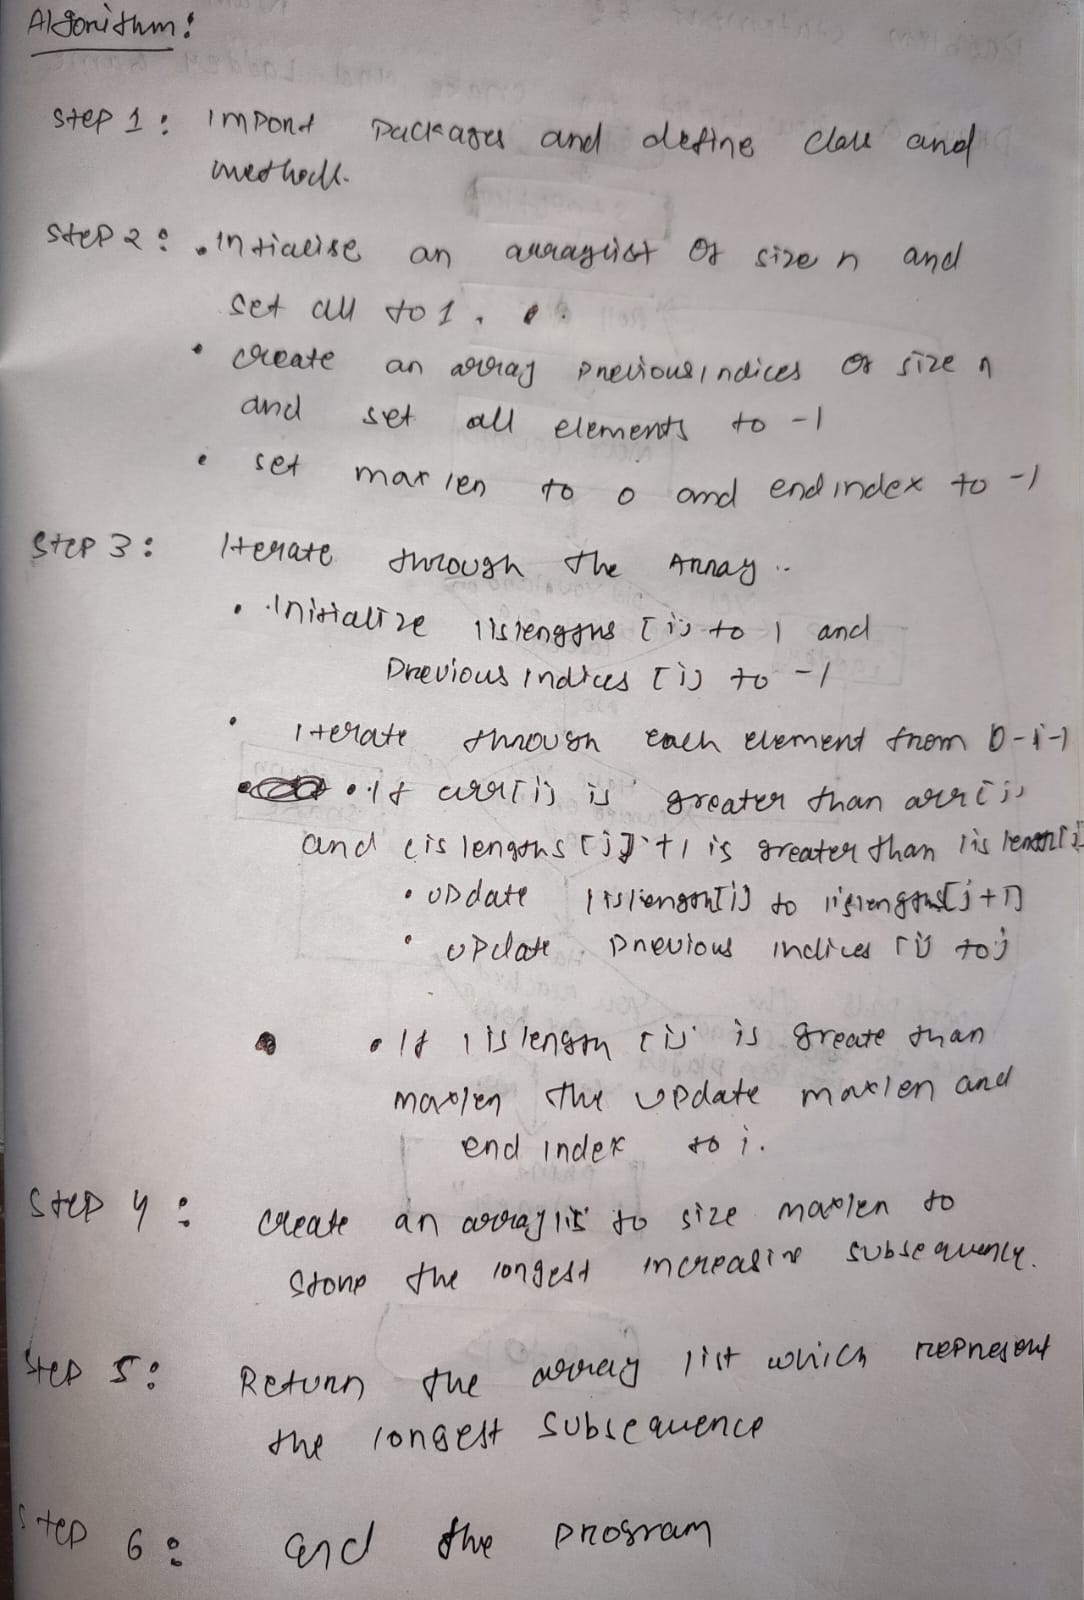 Algorithm:
Step 1: Import Packages and define class and
methods.
Step 2: . Intialise an arraylist of size n and
set all to 1.
• create an array previousindices of size n
and set all elements to -1
• set maxlen to 0 and endindex to -1
Step 3: Iterate through the Array..
• Initialize lislengths [i] to 1 and
Previous Indices [i] to -1
• Iterate through each element from 0-i-1
• If arr[i] is greater than arr[j]
and lislengths [j]+1 is greater than lislength[i]
• Update lislength[i] to lislengths[j+1]
• update previous indices [i] to j
• If lislength [i] is greate than
maxlen the update maxlen and
end index to i.
Step 4: create an arraylis to size maxlen to
Store the longest increasing subsequency.
Step 5: Return the array list which represent
the longest subsequence
Step 6: end the program